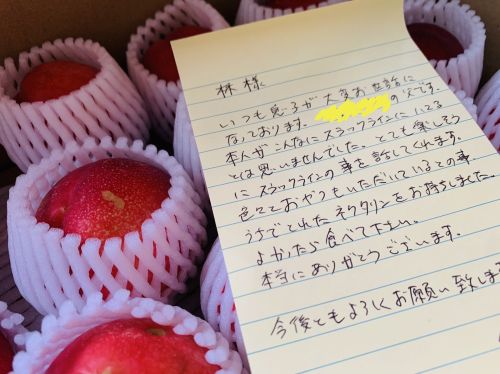 林様
いつも息子が大変お世話に
なっております。の父です。
本人がこんなにスラックラインにハマる
とは思いませんでした。とても楽しそう
にスラックラインの事を話してくれます。
色々とおやつもいただいているとの事
うちでとれたネクタリンをお持ちしました。
よかったら食べて下さい。
本当にありがとうございます。
今後ともよろしくお願い致しま